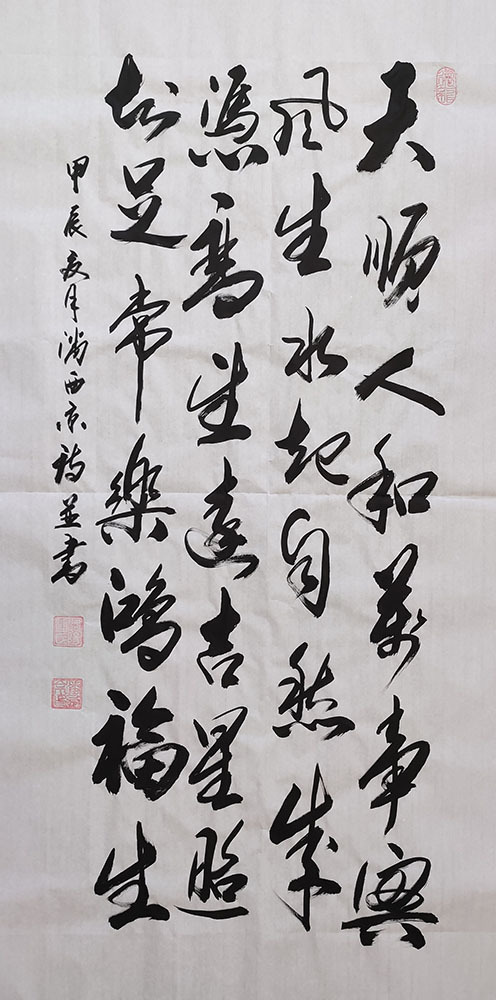 天順人和萬事興
風生水起自然成
憑高望遠吉星照
知足常樂鴻福生
甲辰夏月西京詩並書